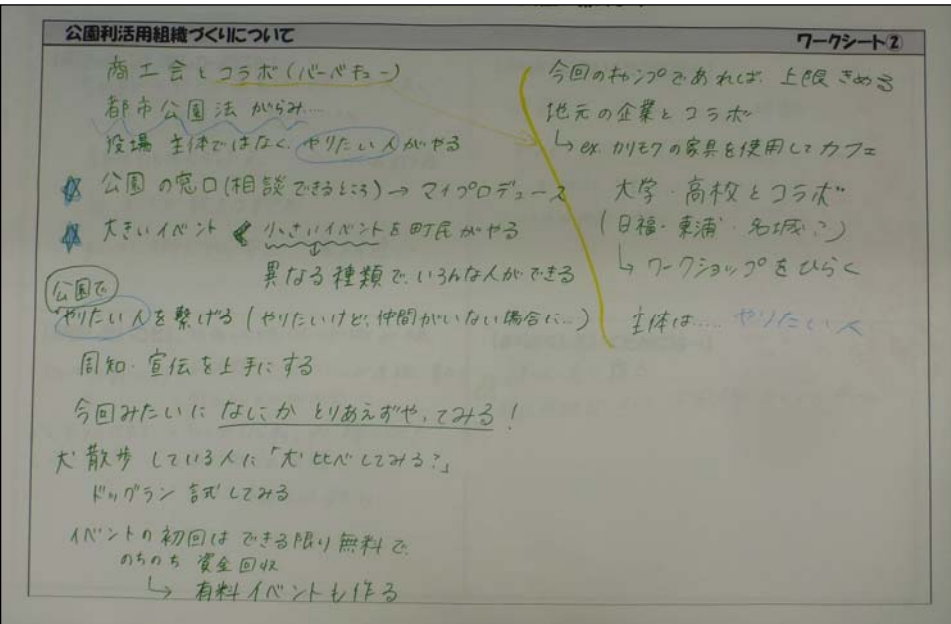 公園利活用組織づくりについて
ワークシート②
商工会とコラボ(バーベキュー)
都市公園法がらみ…
役場主体ではなく、やりたい人がやる
公園の窓口(相談できるところ)→マイプロデュース
大きいイベント < 小さいイベントを町民がやる
↓
異なる種類で、いろんな人ができる
公園で
やりたい人を繋げる(やりたいけど、仲間がいない場合に…)
周知・宣伝を上手にする
今回みたいになにかとりあえずやってみる!
犬散歩している人に「犬比べしてみる?」
ドッグラン 試してみる
イベントの初回はできる限り無料で、
のちのち 資金回収
↳ 有料イベントも作る
今回のキャンプであれば、上限きめる
地元の企業とコラボ
↳ ex カリモクの家具を使用してカフェ
大学・高校とコラボ
(日福・東浦・名城?)
↳ ワークショップをひらく
主体は……やりたい人